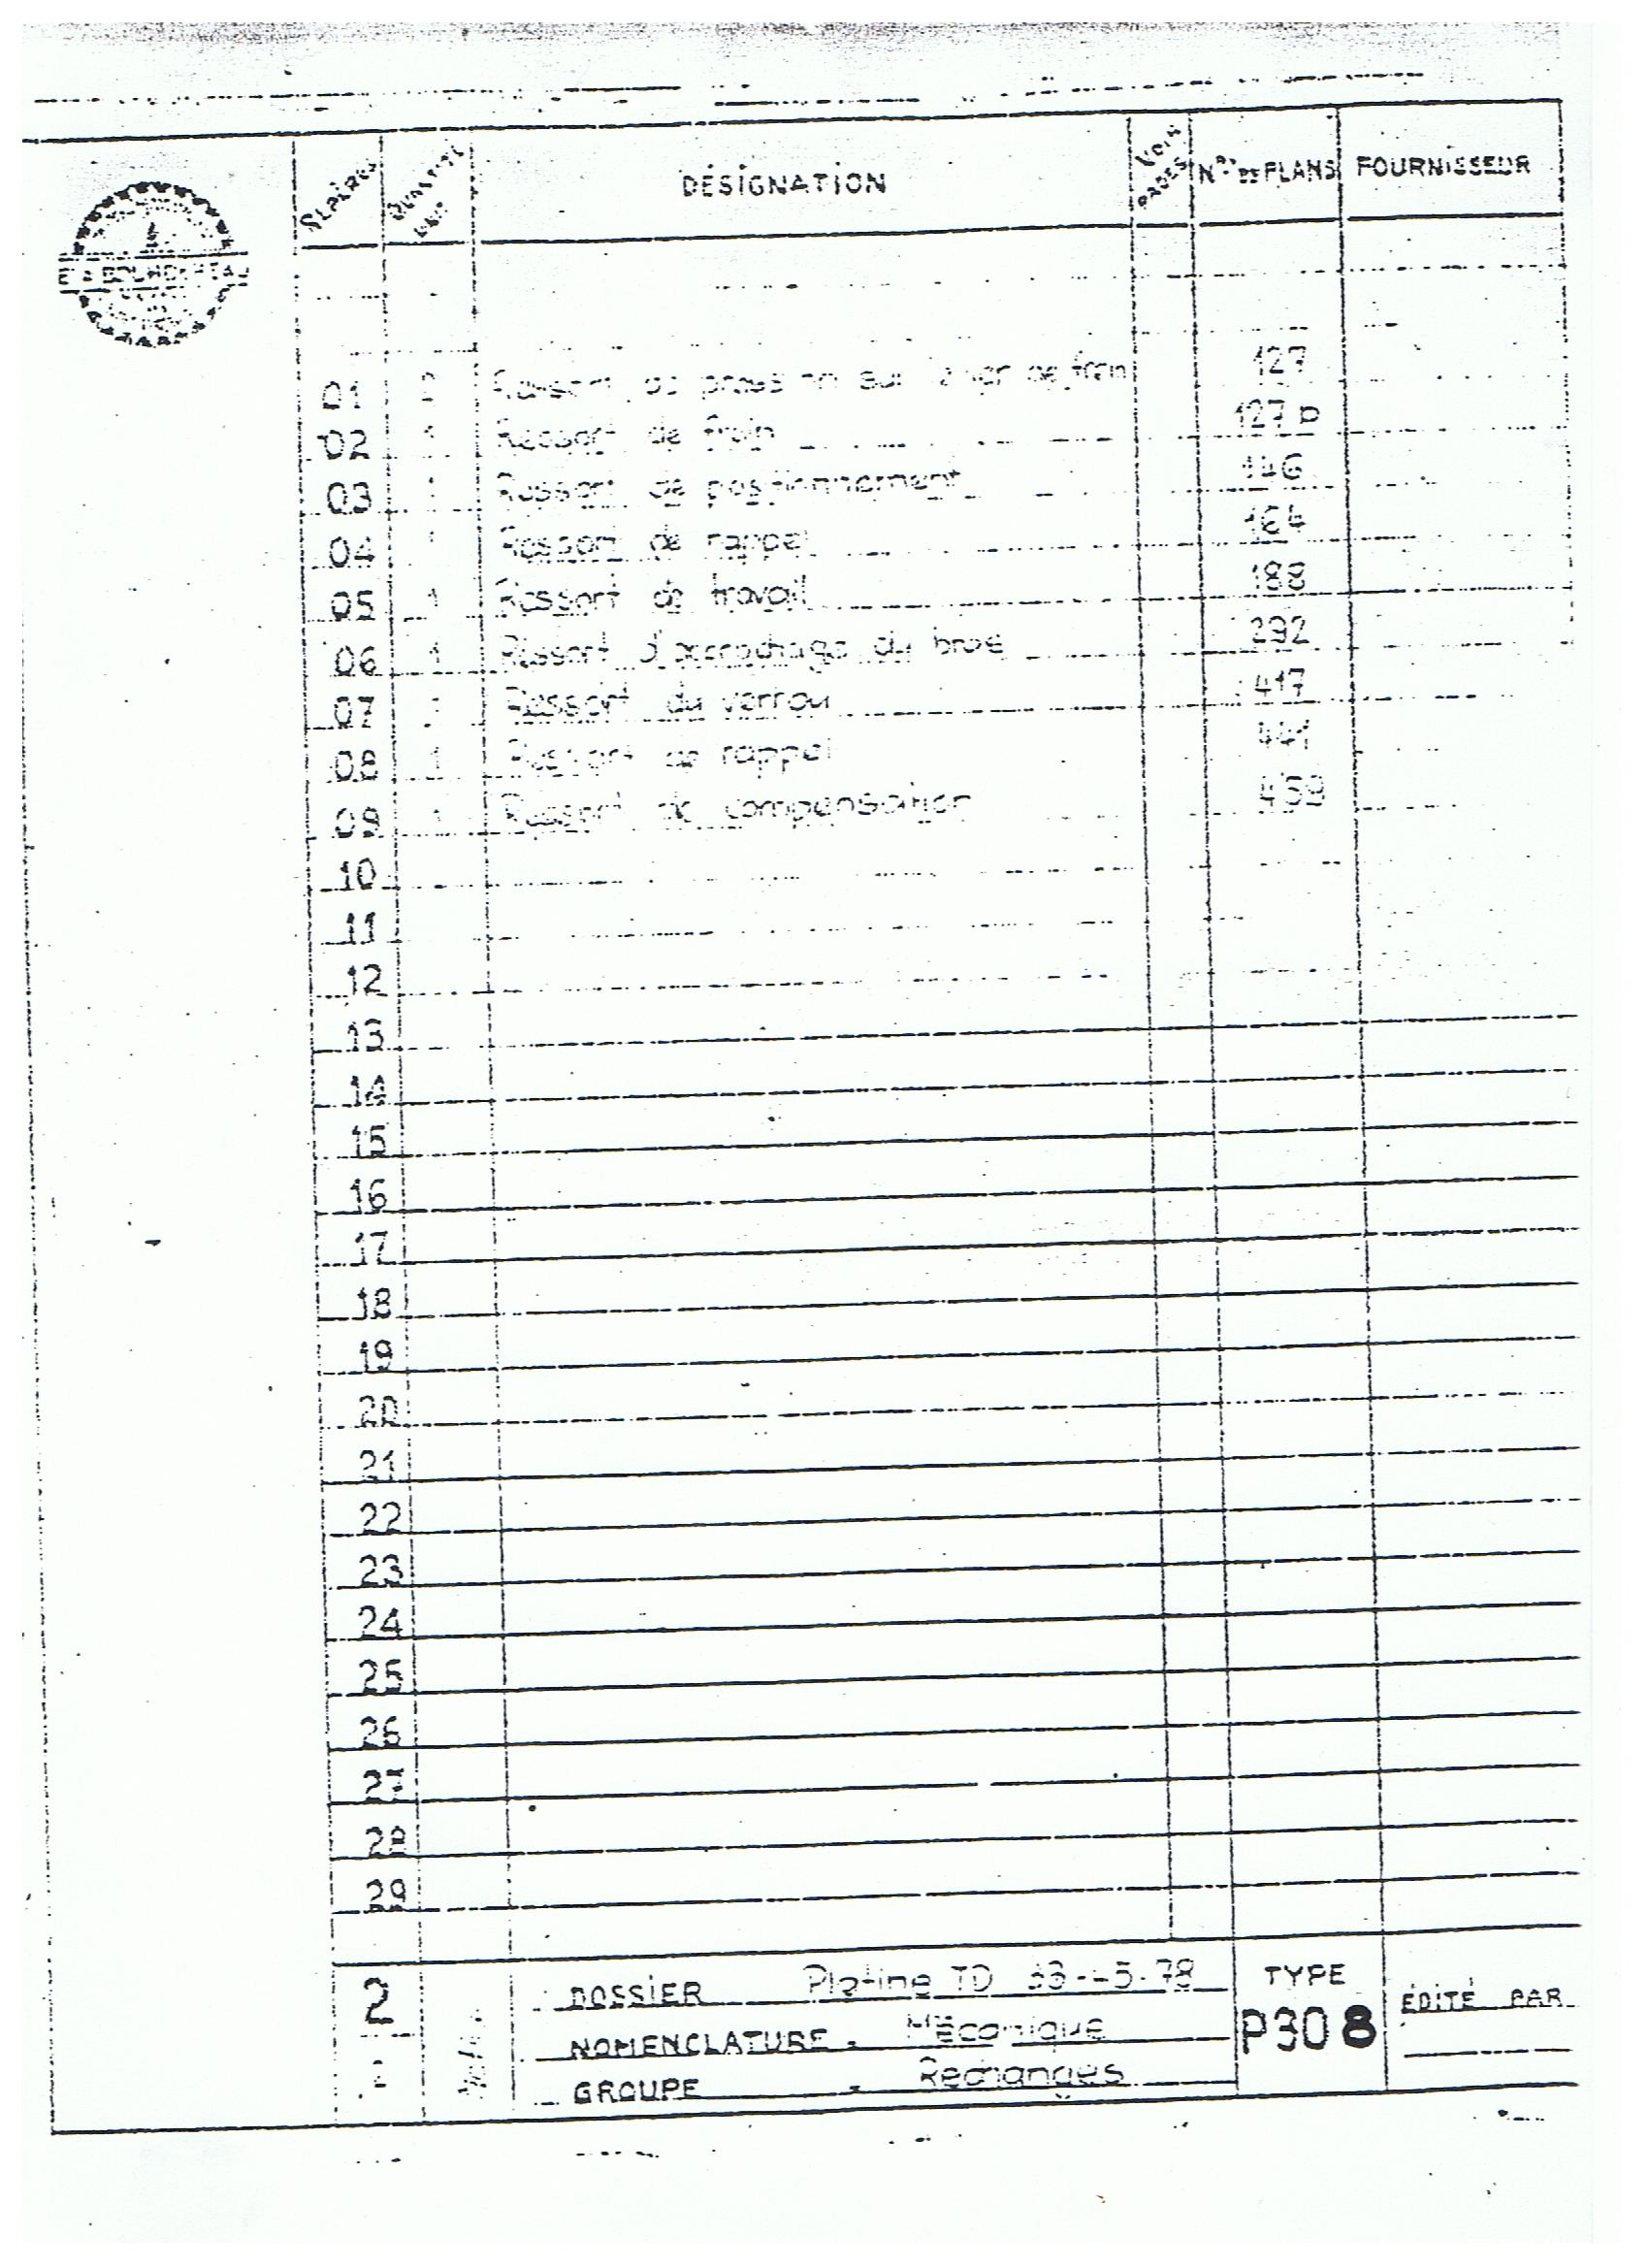 REPÈRES QUANTITÉ DÉSIGNATION VOIR PAGES Nos DE PLANS FOURNISSEUR
01 2 Ressort de pression sur levier de frein 127
02 1 Ressort de frein 127 P
03 1 Ressort de positionnement 146
04 1 Ressort de rappel 164
05 1 Ressort de travail 188
06 1 Ressort d'accrochage du bras 292
07 1 Ressort du verrou 417
08 1 Ressort de rappel 441
09 1 Ressort de compensation 459
10
11
12
13
14
15
16
17
18
19
20
21
22
23
24
25
26
27
28
29
2 DOSSIER Platine TD 33-45-78 TYPE ÉDITÉ PAR
NOMENCLATURE - Mécanique P308
GROUPE - Rechanges